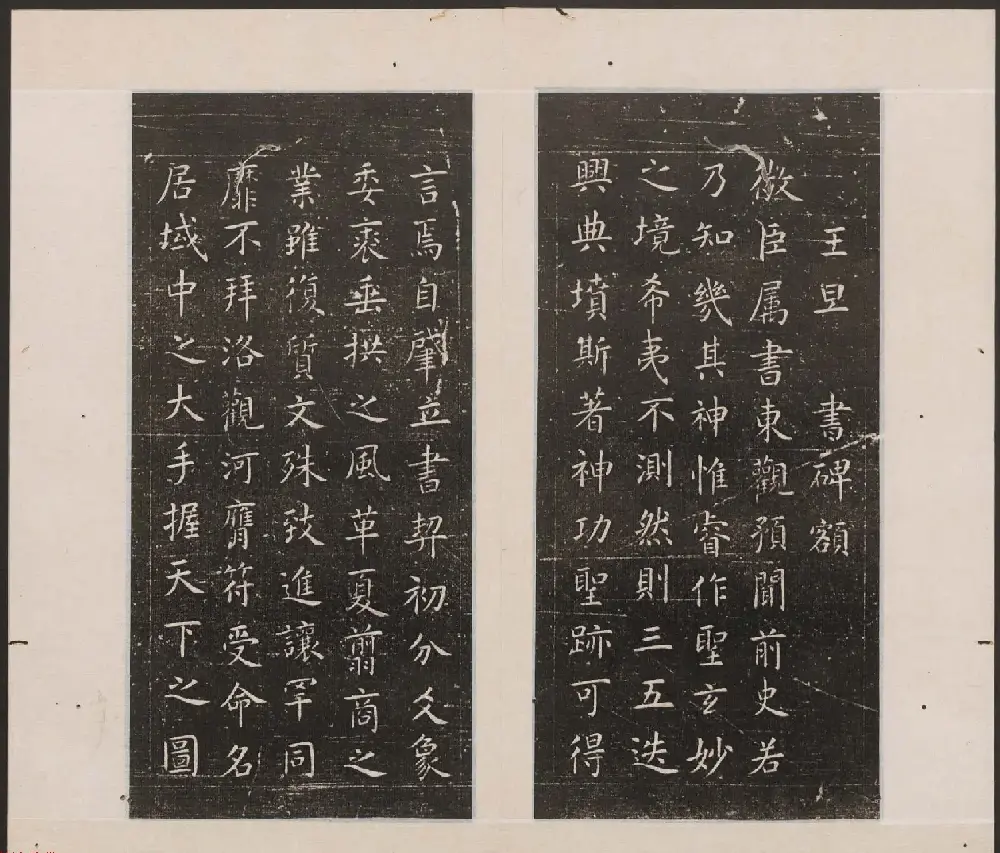 王旦 書碑額
微臣属書東觀預聞前史若
乃知幾其神惟睿作聖玄妙
之境希夷不測然則三五迭
興典墳斯著神功聖跡可得
言焉自肇立書契初分爻象
委裘垂拱之風革夏翦商之
業雖復質文殊致進讓罕同
靡不拜洛觀河膺符受命名
居域中之大手握天下之圖